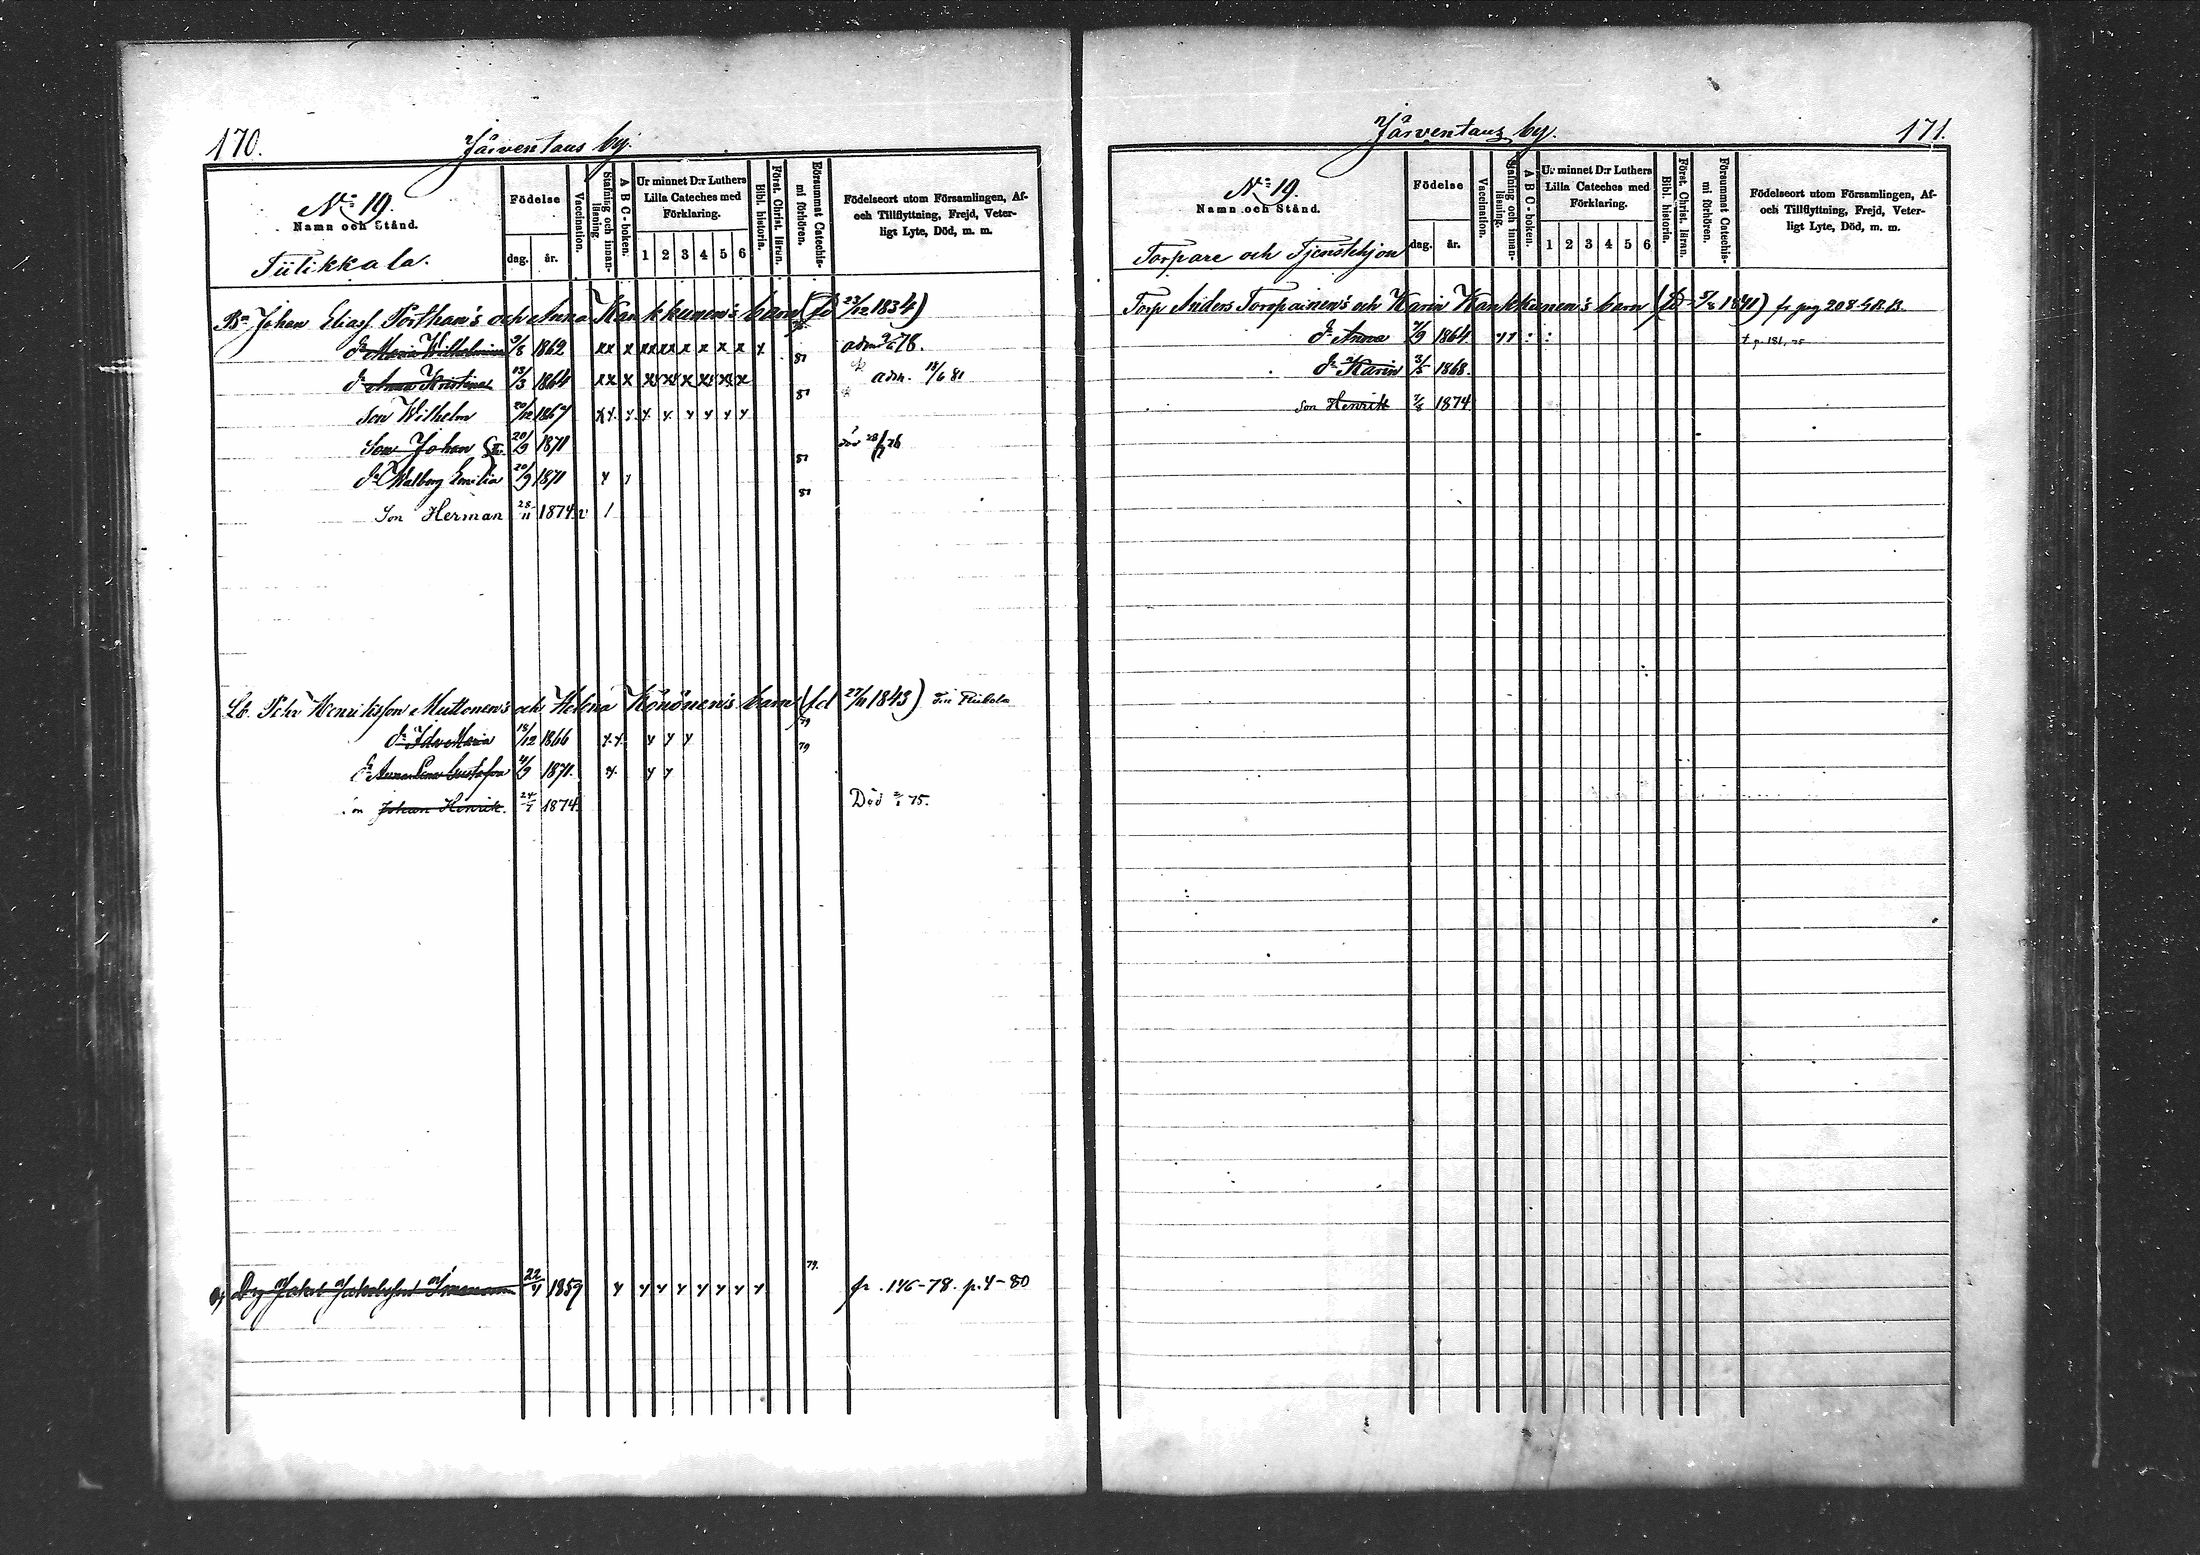 170.
Järventaus by.
No 19.
Namn och Stånd.
Tiilikkala.
Födelse
dag. år.
Vaccination.
Stafning och innanläsning
A B C-boken.
Ur minnet D:r Luthers Lilla Cateches med Förklaring.
1 2 3 4 5 6
Bibl. historia.
Först. Christ. läran.
Försummat Catechismi förhören.
Födelseort utom Församlingen, Af- och Tillflyttning, Frejd, Veterligt Lyte, Död, m. m.
Bn Johan Eliass. Porthan's och Anna Kankkunen's barn (fd 23/12 1834)
dr Maria Wilhelmina 9/8 1862 xx x xx xx x x x x x adm 9/6 78.
81
dr Anna Kristina 13/3 1864 xx x x x x x x x adm. 18/6 81
81
Son Wilhelm 20/12 1867 x y. y. y y y y y y
Son Johan 20/9 1871 död 28/7 76
81
dr Walborg Emilia 20/9 1871 y 1
81
Son Herman 28/11 1874 v /
Lb. Petr Henriksson Muttonen's och Helena Könönen's barn (fd 27/11 1843)
79
dr Ida Maria 18/12 1866 y y. y y y
79
dr Anna Lena Gustafva 4/9 1871. y. y y
Johan Henrik. 24/7 1874. Död 75.
79.
Dg Jakob Jakobsson 22/4 1859 y y y y y y y y fr. 146-78. p. 4-80
Järventaus by.
171.
No 19.
Namn och Stånd.
Torpare och Tjenstehjon
Födelse
dag. år.
Vaccination.
Stafning och innanläsning.
A B C-boken.
Ur minnet D:r Luthers Lilla Cateches med Förklaring.
1 2 3 4 5 6
Bibl. historia.
Först. Christ. läran.
Försummat Catechismi förhören.
Födelseort utom Församlingen, Af- och Tillflyttning, Frejd, Veterligt Lyte, Död, m. m.
Torp Anders Toropainen's och Karin Kankkunen's barn (fd 5/8 1841) fr pag 208
dr Anna 7/9 1864 y 1 : :
dr Karin 3/5 1868.
Son Henrik 7/8 1874